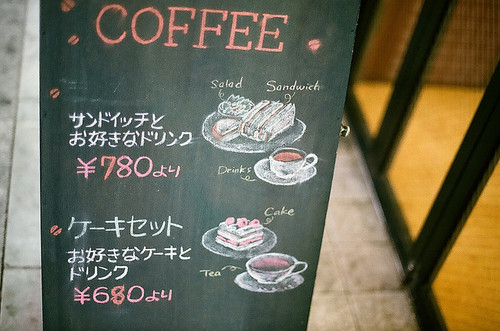 COFFEE
Salad
Sandwich
サンドイッチと
お好きなドリンク
¥780より
Drinks
ケーキセット
Cake
お好きなケーキと
ドリンク
Tea
¥680より